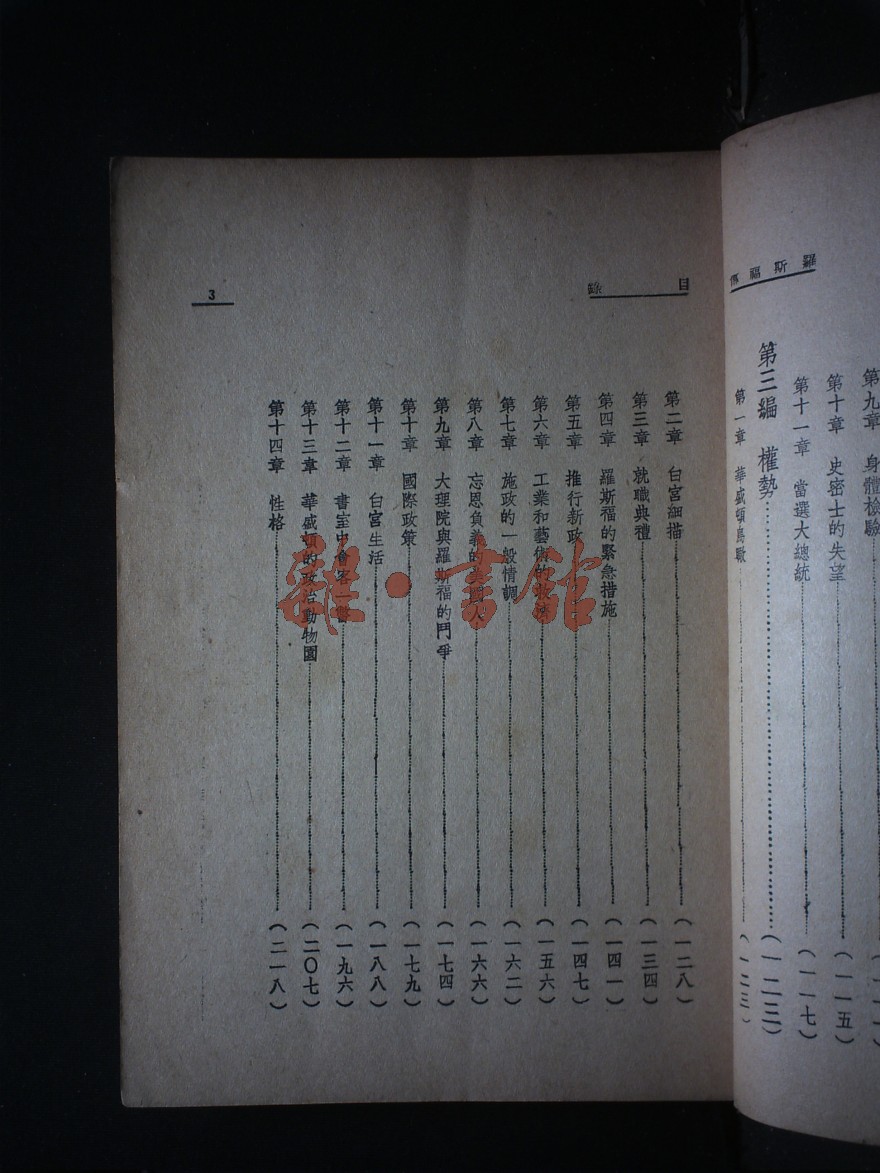 羅斯福傳
第九章 身體檢驗
第十章 史密士的失望 (一一五)
第十一章 當選大總統 (一一七)
第三編 權勢 (一二三)
第一章 華盛頓鳥瞰 (一二三)
目錄
第二章 白宮細描 (一二八)
第三章 就職典禮 (一三四)
第四章 羅斯福的緊急措施 (一四一)
第五章 推行新政 (一四七)
第六章 工業和藝術的 (一五六)
第七章 施政的一般情調 (一六二)
第八章 忘恩負義的 人 (一六六)
第九章 大理院與羅斯福的鬥爭 (一七四)
第十章 國際政策 (一七九)
第十一章 白宮生活 (一八八)
第十二章 書室中會客一瞥 (一九六)
第十三章 華盛頓的政治動物園 (二〇七)
第十四章 性格 (二一八)
3
雜·書館